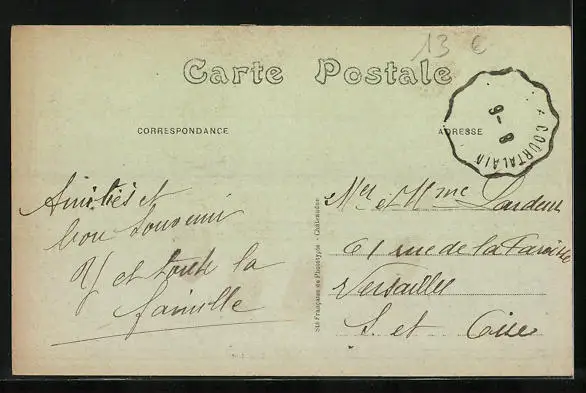 13 €
Carte Postale
CORRESPONDANCE
ADRESSE
COURTALAIN
9 - 8
Amitiés et
bon souvenir
et toute la
famille
Sté Française de Phototypie - Châteaudun
Mr et Mme Lardeur
61 rue de la Paroisse
Versailles
S. et Oise